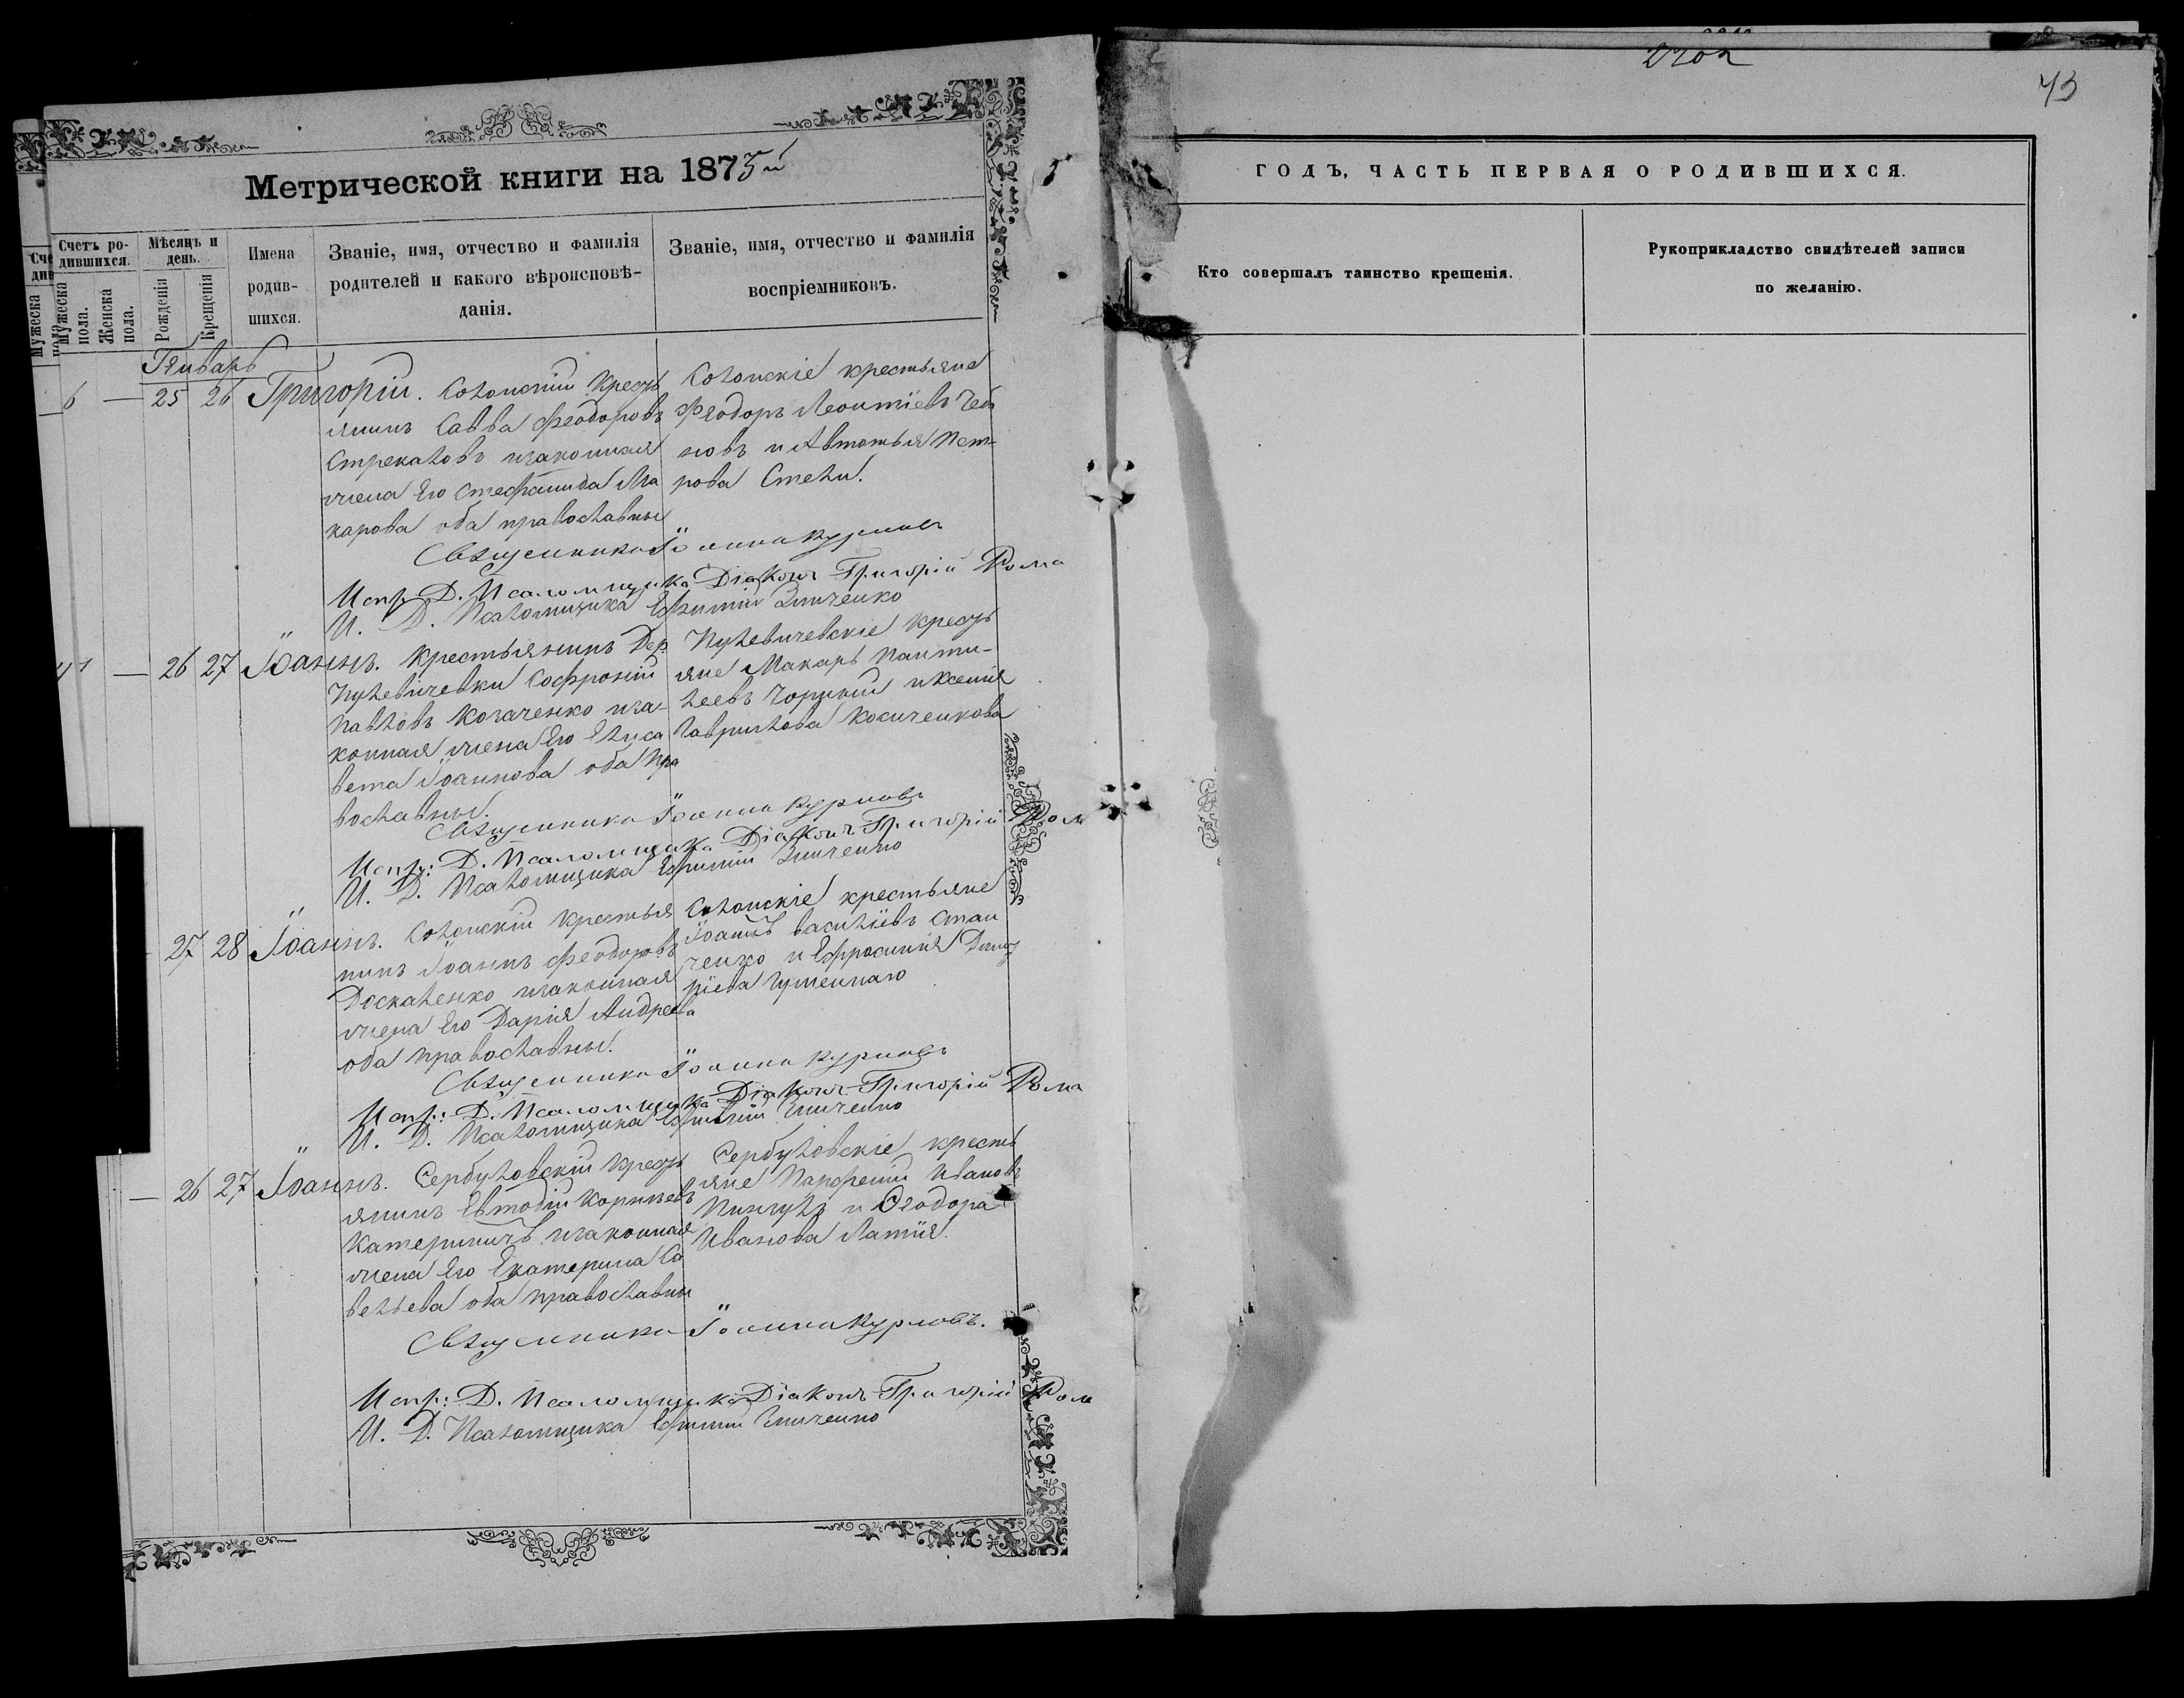 2202
43
Метрической книги на 1875й
ГОДЪ, ЧАСТЬ ПЕРВАЯ О РОДИВШИХСЯ.
Счетъ родившихся.
Мужеска пола.
Женска пола.
Мѣсяцъ и день.
Рожденія
Крещенія
Имена
родив-
шихся.
Званіе, имя, отчество и фамилія
родителей и какого вѣроисповѣ-
данія.
Званіе, имя, отчество и фамилія
воспріемниковъ.
Кто совершалъ таинство крещенія.
Рукоприкладство свидѣтелей записи
по желанію.
Январь
6 — 25 26 Григорій. Солонскій Кресть
янинъ Савва Феодоровъ
Стрекаловъ изаконная
жена Его Стефанида Ма
карова оба православны
Солонскіе крестьяне
Феодоръ Леонтіевъ
новъ и Автотья Пет-
рова
Священникъ Іоаннъ Курловъ
Испр. Д. Псаломщика Діаконъ Григорій Рома
И. Д. Псаломщика Ефимій Зинченко
— 26 27 Іоаннъ. Крестьянинъ Дер.
Пулевичевки Софроній
Павловъ Козаченко иза-
конная жена Его Елиса
вета Іоаннова оба пра
вославны.
Пулевичевскіе Кресть
яне Макаръ Панти-
леевъ и Ксенія
Гаврилова Косиченкова
Священникъ Іоаннъ Курловъ
Испр: Д. Псаломщика Діаконъ Григорій Ром
И. Д. Псаломщика Ефимій Зинченко
27 28 Іоаннъ. Солонскій Крестья
нинъ Іоаннъ Феодоровъ
Доскаленко изаконная
жена Его Дарія Андреева
оба православны.
Солонскіе крестьяне
Іоаннъ Василіевъ Стан
ченко и Ефросинія Димит
ріева
Священникъ Іоаннъ Курловъ
Испр: Д. Псаломщика Діаконъ Григорій Рома
И. Д. Псаломщика Ефимій Зинченко
— 26 27 Іоаннъ. Сербуловскій Кресть
янинъ Евтодій Корнѣевъ
Катериничъ изаконная
жена Его Екатерина Са
вельева оба православны
Сербуловскіе кресть
яне Парфеній Ивановъ
и Феодора
Иванова
Священникъ Іоаннъ Курловъ.
Испр: Д. Псаломщика Діаконъ Григорій Ром
И. Д. Псаломщика Ефимій Зинченко